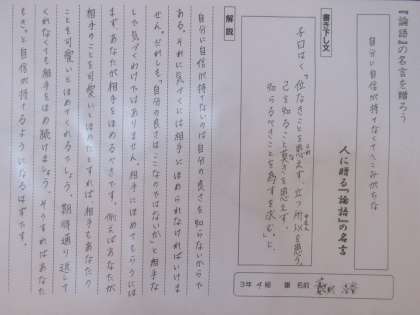 『論語』の名言を贈ろう
自分に自信が持てなくてへこみがちな
人に贈る『論語』の名言
書き下し文
子曰はく「位なきを患えず、立つ所以を患う。
己を知ること莫きを患えず、
知らるべきことを為すを求む」と。
解説
自分に自信が持てないのは自分の良さを知らないからで
ある。それに気づくには相手にほめられなければいけま
せん。だれしも「自分の良さはここなのではないか」と相手な
しで気づくわけではありません。相手にほめてもらうには
まずあなたが相手をほめるべきです。例えばあなたが
相手のことを可愛いとほめたとすれば相手もあなたの
ことを可愛いとほめてくれるでしょう。期待通り返して
くれなくても相手をほめ続けましょう。そうすればあなた
もきっと自信が持てるようになるはずです。
3年 4組 番 名前